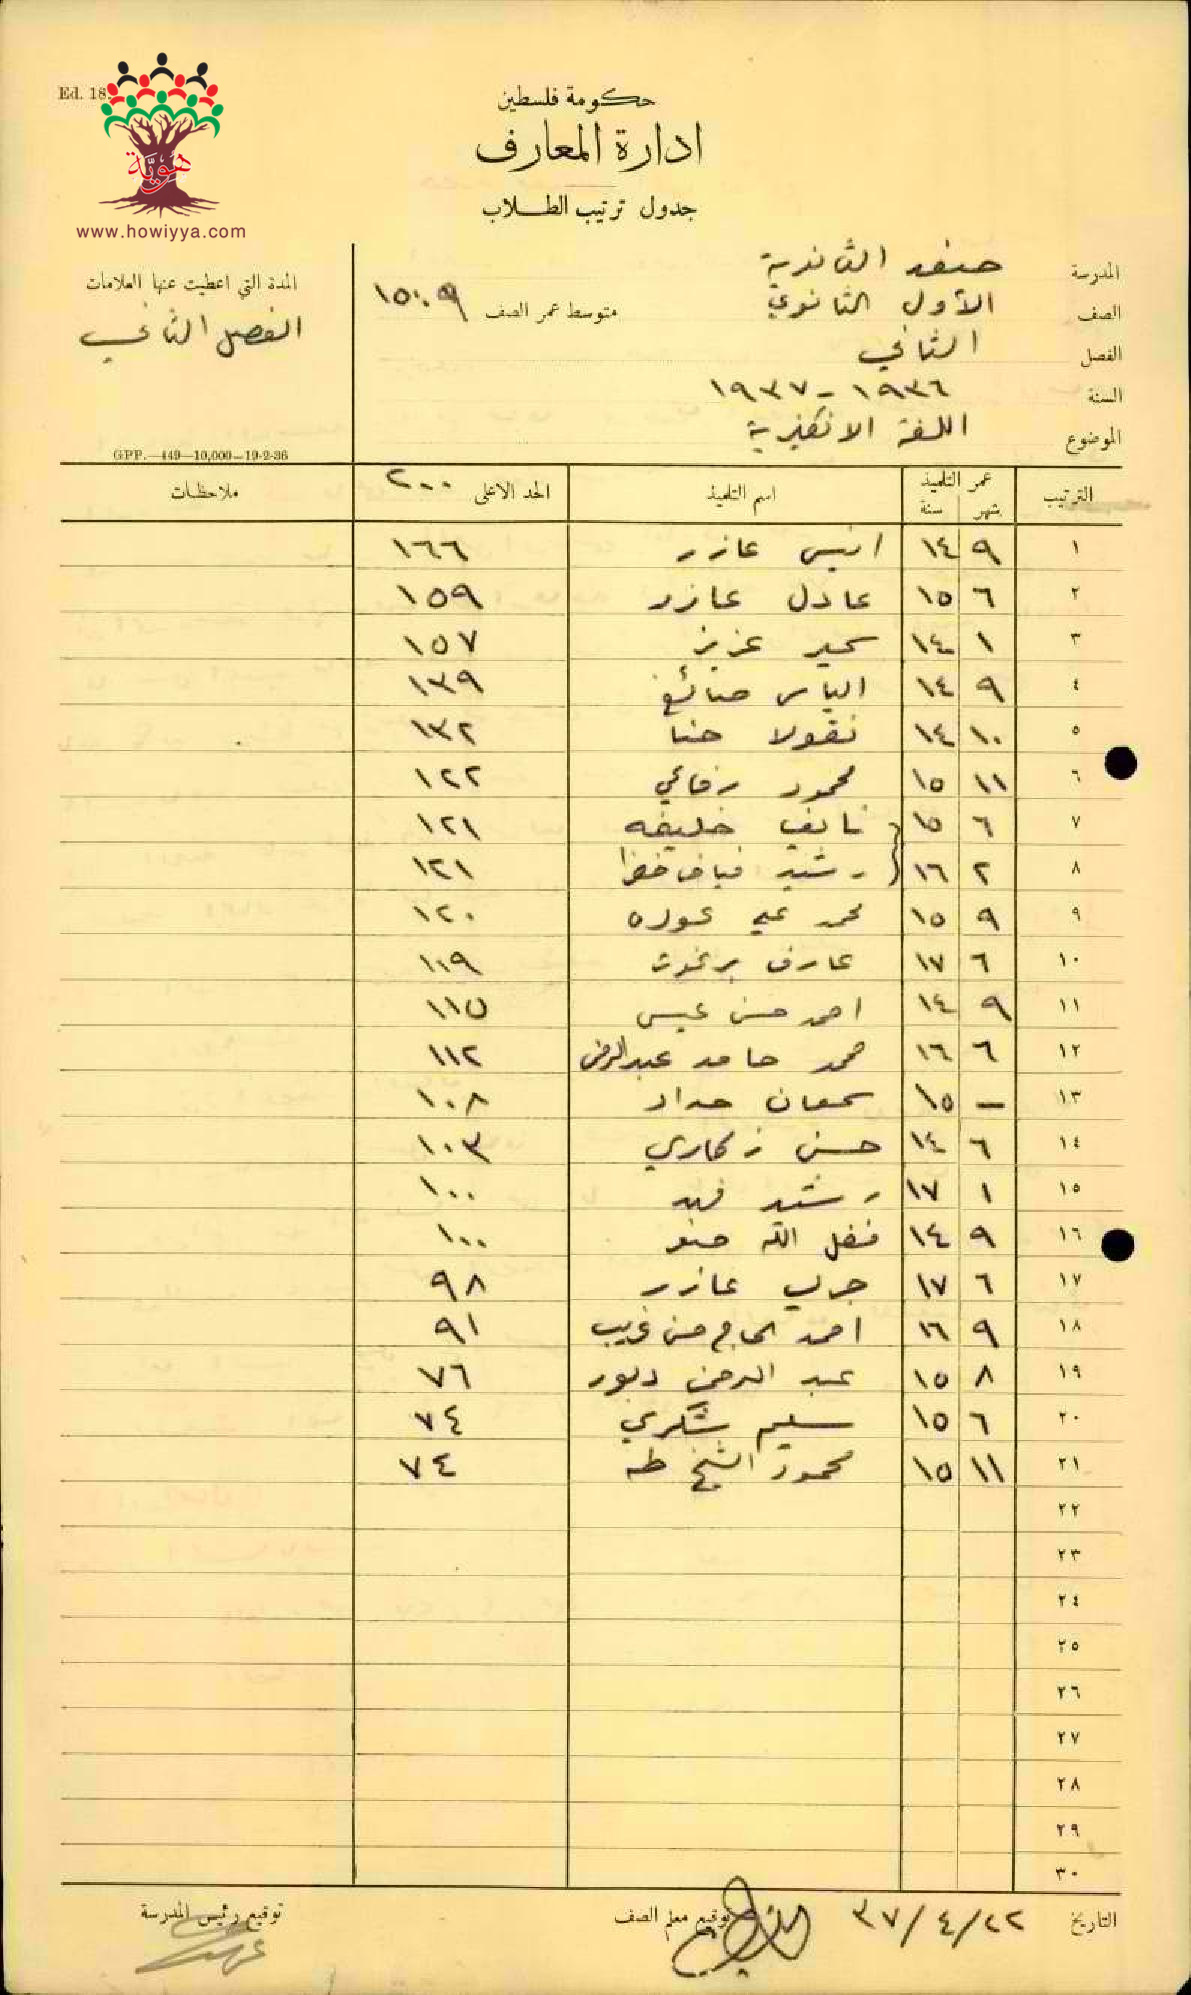 Ed. 18.
هويّة
www.howiyya.com
حكومة فلسطين
ادارة المعارف
جدول ترتيب الطلاب
المدرسة صفد الثانوية
الصف الأول الثانوي متوسط عمر الصف ١٥,٠٩
الفصل الثاني
السنة ١٩٣٦ - ١٩٣٧
الموضوع اللغة الانكليزية
المدة التي اعطيت عنها العلامات
الفصل الثاني
GPP.—449—10,000—19-2-36
الترتيب عمر التلميذ بشهر سنة اسم التلميذ الحد الاعلى ٢٠٠ ملاحظات
١ ٩ ١٤ انيس عازر ١٦٦
٢ ٦ ١٥ عادل عازر ١٥٩
٣ ١ ١٤ سمير عزيز ١٥٧
٤ ٩ ١٤ الياس صائغ ١٣٩
٥ ١٠ ١٤ نقولا حنا ١٣٢
٦ ١١ ١٥ محمود رفاعي ١٢٢
٧ ٦ ١٥ نايف خليفه ١٢١
٨ ٢ ١٦ رشيد فياض خضرا ١٢١
٩ ٩ ١٥ محمد علي عوده ١٢٠
١٠ ٦ ١٧ عارف برغوث ١١٩
١١ ٩ ١٤ احمد حسن عيسى ١١٥
١٢ ٦ ١٦ محمد حامد عبدالرحمن ١١٢
١٣ — ١٥ سمعان حداد ١٠٨
١٤ ٦ ١٤ حسن زكاري ١٠٣
١٥ ١ ١٧ رشيد فهد ١٠٠
١٦ ٩ ١٤ فضل الله ١٠٠
١٧ ٦ ١٧ عازر ٩٨
١٨ ٩ ١٦ احمد الحاج حسن غريب ٩١
١٩ ٨ ١٥ عبد الرحمن دبور ٧٦
٢٠ ٦ ١٥ سليم شكري ٧٤
٢١ ١١ ١٥ محمود الشيخ طه ٧٤
٢٢
٢٣
٢٤
٢٥
٢٦
٢٧
٢٨
٢٩
٣٠
التاريخ ٢٢/٤/٣٧ توقيع معلم الصف توقيع رئيس المدرسة